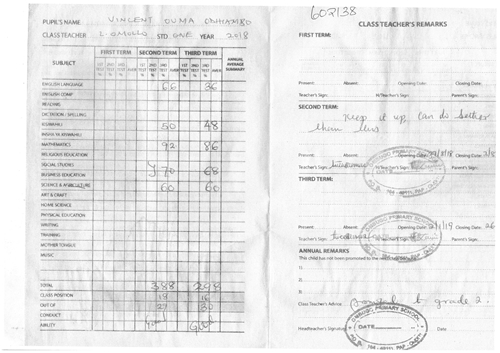 PUPIL'S NAME VINCENT OUMA
CLASS TEACHER L. OMOLLO STD ONE YEAR 2018
FIRST TERM SECOND TERM THIRD TERM ANNUAL AVERAGE SUMMARY
SUBJECT 1ST TEST % 2ND TEST % 3RD TEST % AVER 1ST TEST % 2ND TEST % 3RD TEST % AVER 1ST TEST % 2ND TEST % 3RD TEST % AVER
ENGLISH LANGUAGE 66 36
ENGLISH COMP
READING
DICTATION / SPELLING
KISWAHILI 50 48
INSHA YA KISWAHILI
MATHEMATICS 92 86
RELIGIOUS EDUCATION
SOCIAL STUDIES
BUSINESS EDUCATION 70 68
SCIENCE & AGRICULTURE 60 60
ART & CRAFT
HOME SCIENCE
PHYSICAL EDUCATION
WRITING
TRAINING
MOTHER TONGUE
MUSIC
TOTAL 388 298
CLASS POSITION 19 16
OUT OF 27 30
CONDUCT
ABILITY Good
602138
CLASS TEACHER'S REMARKS
FIRST TERM:
Present: Absent: Opening Date: Closing Date:
Teacher's Sign: H/Teacher's Sign: Parent's Sign:
SECOND TERM:
Keep it up can do better
than this
Present: Absent: Closing Date:
Teacher's Sign: Parent's Sign:
THIRD TERM:
PRIMARY SCHOOL
Present: Absent: Opening Date: 2/1/19 Closing Date: 26
Teacher's Sign: Parent's Sign:
ANNUAL REMARKS
This child has not been promoted to the
1)
2)
3)
Class Teacher's Advice: promoted to grade 2.
PRIMARY SCHOOL
Headteacher's Signature DATE